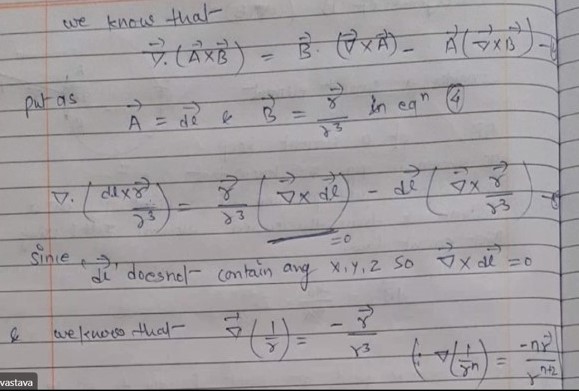 we know that
∇⃗·(A⃗×B⃗) = B⃗·(∇⃗×A⃗) - A⃗(∇⃗×B⃗) -
put as
A⃗ = dl⃗ & B⃗ = r⃗/r³ in eqⁿ ④
∇·(dl×r⃗/r³) = r⃗/r³ (∇⃗×dl⃗) - dl⃗ (∇⃗×r⃗/r³) -
=0
Since, dl⃗ doesnot contain any x,y,z so ∇⃗×dl⃗ =0
& we know that ∇⃗(1/r) = -r⃗/r³ (∵ ∇(1/rⁿ) = -nr⃗/rⁿ⁺²
vastava